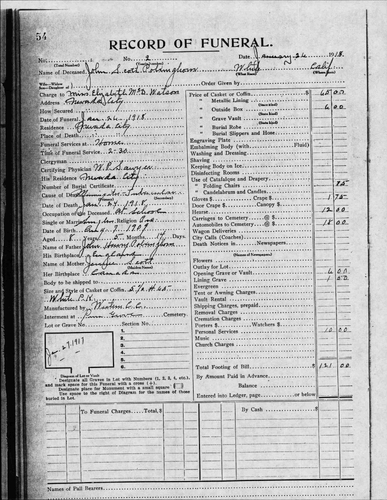 54
RECORD OF FUNERAL.
No. 2 Date January 24 1918
(Total Number) (Yearly Number)
Name of Deceased John Scott Robingham White Calif
(What Race) (Where Born)
Order Given by
Charge to Miss Elizabeth Watson
Address Nevada City
How Secured
Date of Funeral Jan. 24. 1918
Residence Nevada City
Place of Death
Funeral Services at Home
Time of Funeral Service 2-30.
Clergyman
Certifying Physician W. P. Sawyer
His Residence Nevada City
Number of Burial Certificate
Cause of Death
Date of Death Jan. 1918
Occupation of the Deceased At School
Single or Married Religion
Date of Birth Aug. 7. 1909
Aged 8 Years 5 Months 17 Days
Name of Father John Henry
His Birthplace England
Name of Mother Scott
(Maiden Name)
Her Birthplace Canada
Body to be shipped to
Size and Style of Casket or Coffin
White P.K.
Manufactured by C. C.
Interment at Pine Grove Cemetery
Lot or Grave No. Section No.
1.
2.
3.
4.
5.
6.
7.
8.
Diagram of Lot or Vault
Designate all Graves in Lot with Numbers (1, 2, 3, 4, etc.), and mark space for this Funeral with a cross (+)
Designate place for Monument with a small square
Use space to the right of Diagram for the names of those buried in Lot.
Price of Casket or Coffin 65 00
" Metallic Lining
(State kind)
" Outside Box 6 00
(State kind)
" Grave Vault
(State kind)
" Burial Robe
(State kind)
" Burial Slippers and Hose
Engraving Plate
Embalming Body (with Fluid)
Washing and Dressing
Shaving
Keeping Body on Ice
Disinfecting Rooms
Use of Catafalque and Drapery
" Folding Chairs 75
" Candelabrum and Candles
Gloves $ Crape $ 1 75
Door Crape $ Canopy $
Hearse 12 00
Carriages to Cemetery @ $
Automobiles to Cemetery @ $ 15 00
Wagon Deliveries
City Calls (Coaches)
Death Notices in Newspapers
(Names of Newspapers)
Flowers
Outlay for Lot
Opening Grave or Vault 6 00
Lining Grave 5 00
Evergreen
Tent or Awning Charges
Vault Rental
Shipping Charges, prepaid
Removal Charges
Cremation Charges
Porters $ Watchers $
Personal Services 10 00
Music
Church Charges
Total Footing of Bill $ 121 00
By Amount Paid in Advance
Balance
Entered into Ledger, page or below
To Funeral Charges, Total $ By Cash $
Names of Pall Bearers